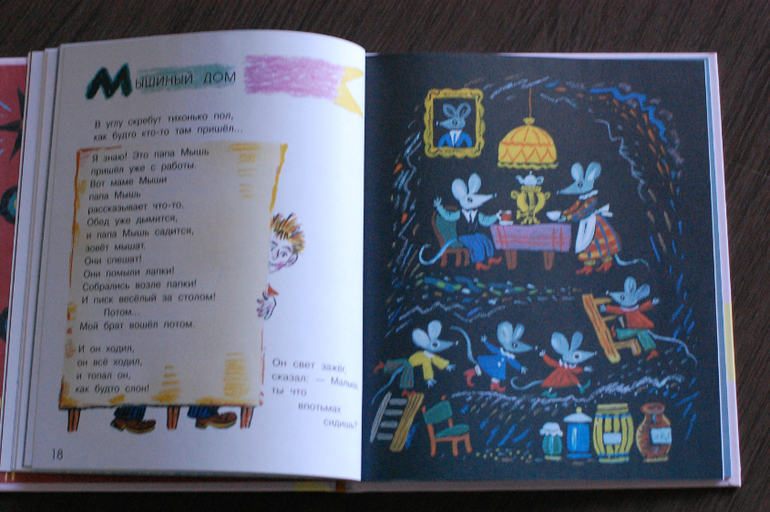 Мышиный дом
В углу скребут тихонько пол,
как будто кто-то там пришёл...
Я знаю! Это папа Мышь
пришёл уже с работы.
Вот маме Мыши
папа Мышь
рассказывает что-то.
Обед уже дымится,
и папа Мышь садится,
зовёт мышат.
Они спешат!
Они помыли лапки!
Собрались возле папки!
И писк весёлый за столом!
Потом...
Мой брат вошёл потом.
И он ходил,
он всё ходил,
и топал он,
как будто слон!
Он свет зажёг,
сказал: — Малыш,
ты что
впотьмах
сидишь?
18